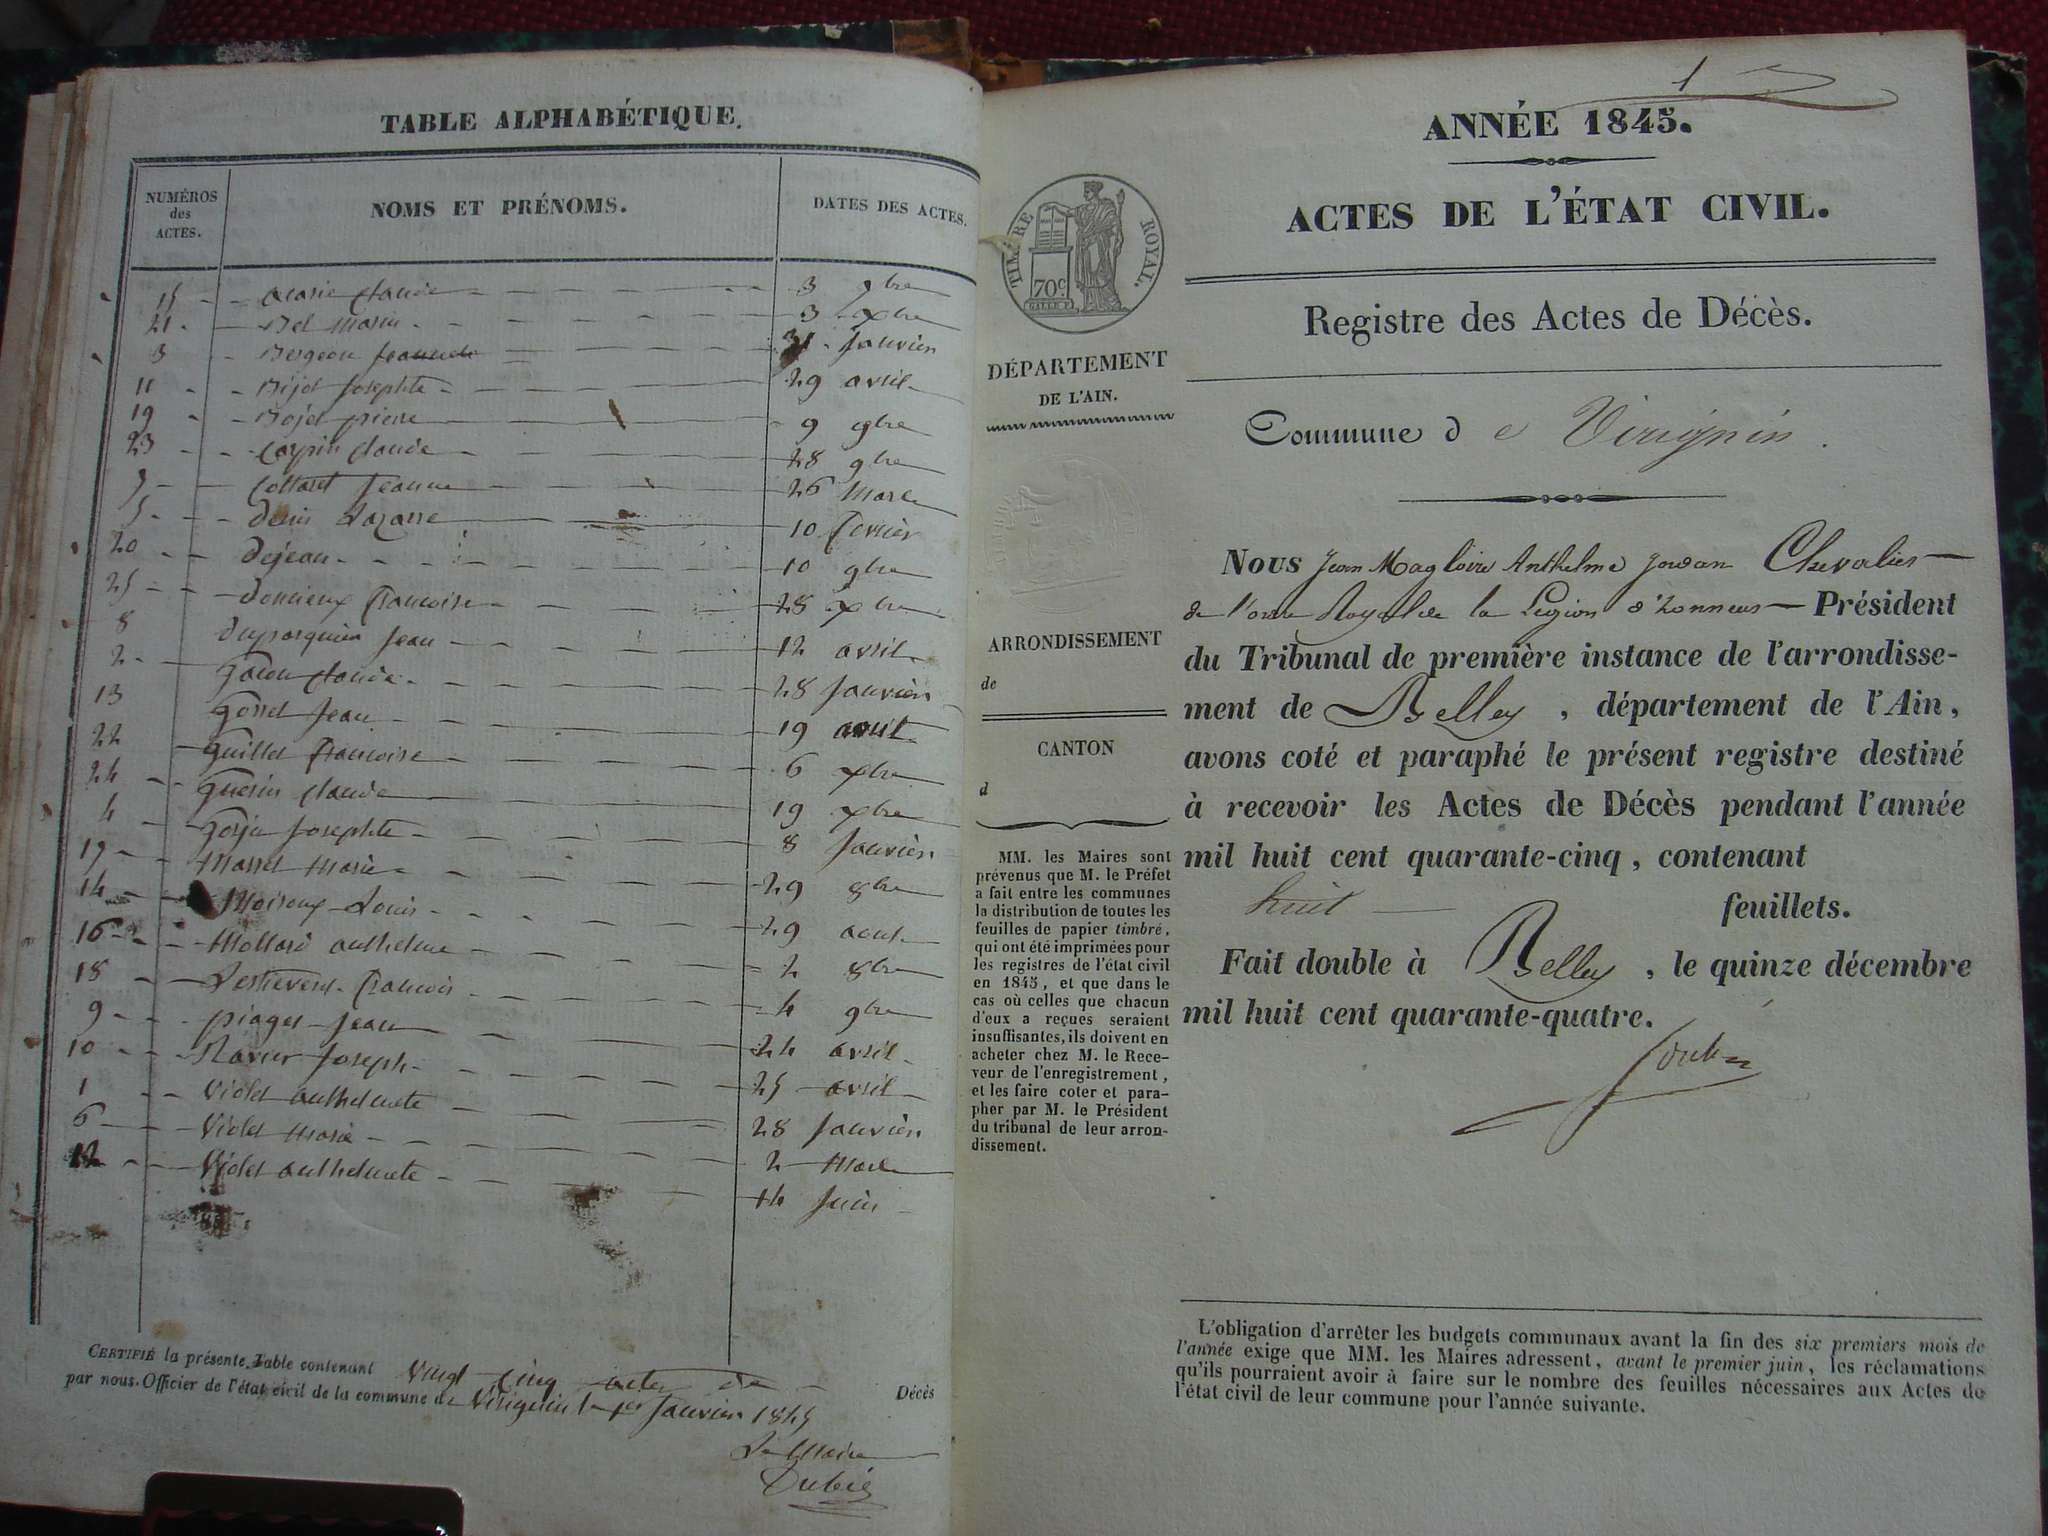 TABLE ALPHABÉTIQUE.
NUMÉROS des ACTES.
NOMS ET PRÉNOMS.
DATES DES ACTES.
15 claude 3 9bre
21 Bel Marie 3 xbre
3 Bergeon 31 Janvier
11 Bijot Josephte 29 avril
19 Bojet pierre 9 9bre
23 Carpin Claude 28 9bre
7 Collaret Jeanne 26 Mars
5 Denis Lazarre 10 Fevrier
20 Dejean 10 9bre
25 Doncieux Francoise 28 xbre
8 Duparquier Jean 12 avril
2 claude 28 Janvier
13 Gosset Jean 19 aout
22 Guillet Francoise 6 xbre
24 Guerin claude 19 xbre
4 Gorju Josephte 8 Janvier
17 Marret Marie 29 8bre
14 Moiroux Louis 29 aout
16 Mollard anthelme 2 8bre
18 francois 4 9bre
9 piaget Jean 24 avril
10 Ravier Joseph 25 avril
1 Violet anthelmete 28 Janvier
6 Violet Marie 2 Mars
12 Violet anthelmete 14 Juin
CERTIFIÉ la présente Table contenant Vingt cinq actes de Décès
par nous Officier de l'état civil de la commune de Virignin le 1er Janvier 1845
Le Maire
Dubié
1
ANNÉE 1845.
ACTES DE L'ÉTAT CIVIL.
Registre des Actes de Décès.
TIMBRE ROYAL.
70c
DÉPARTEMENT
DE L'AIN.
ARRONDISSEMENT
de
CANTON
d
MM. les Maires sont
prévenus que M. le Préfet
a fait entre les communes
la distribution de toutes les
feuilles de papier timbré,
qui ont été imprimées pour
les registres de l'état civil
en 1845, et que dans le
cas où celles que chacun
d'eux a reçues seraient
insuffisantes, ils doivent en
acheter chez M. le Rece-
veur de l'enregistrement,
et les faire coter et para-
pher par M. le Président
du tribunal de leur arron-
dissement.
Commune de Virignin.
Nous Jean Magloire Anthelme Jordan Chevalier
de l'ordre Royal de la Legion d'honneur Président
du Tribunal de première instance de l'arrondisse-
ment de Belley, département de l'Ain,
avons coté et paraphé le présent registre destiné
à recevoir les Actes de Décès pendant l'année
mil huit cent quarante-cinq, contenant
huit feuillets.
Fait double à Belley, le quinze décembre
mil huit cent quarante-quatre.
L'obligation d'arrêter les budgets communaux avant la fin des six premiers mois de
l'année exige que MM. les Maires adressent, avant le premier juin, les réclamations
qu'ils pourraient avoir à faire sur le nombre des feuilles nécessaires aux Actes de
l'état civil de leur commune pour l'année suivante.